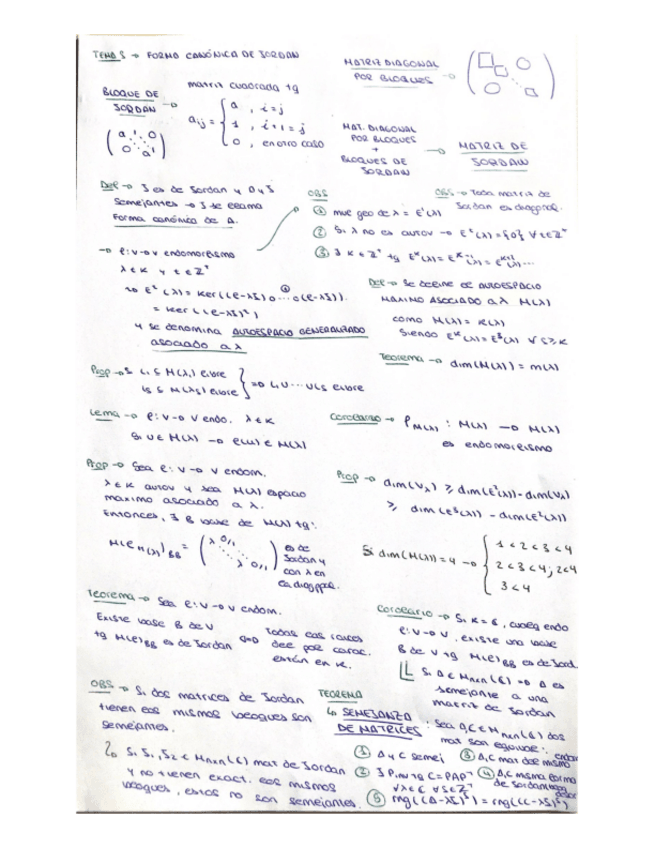 TEMA 5 → FORMA CANÓNICA DE JORDAN
MATRIZ DIAGONAL
POR BLOQUES →
BLOQUE DE
JORDAN →
matriz cuadrada tq
aij = { a , i=j
1 , i+1=j
0 , en otro caso
MAT. DIAGONAL
POR BLOQUES
+
BLOQUES DE
JORDAN
→ MATRIZ DE
JORDAN
Def → J es de Jordan y A y J
semejantes → J se llama
forma canónica de A.
OBS
① mult geo de λ = E¹(λ)
② Si λ no es autov → Eᵗ(λ)={0} ∀t∈Z⁺
③ ∃ K∈Z⁺ tq Eᴷ(λ)=Eᴷ⁺¹(λ)=Eᴷ⁺²(λ)...
OBS → Toda matriz de
Jordan es diag sup.
→ f: V→V endomorfismo
λ∈K y t∈Z⁺
Eᵗ(λ) = Ker((f-λI)∘...∘(f-λI)).
= Ker((f-λI)ᵗ)
y se denomina AUTOESPACIO GENERALIZADO
asociado a λ
Def → Se define el AUTOESPACIO
MÁXIMO ASOCIADO a λ M(λ)
como M(λ) =
siendo Eᴷ(λ)=Eˢ(λ) ∀ s≥K
Teorema → dim(M(λ)) = m(λ)
Prop → Si L₁ ⊆ M(λ₁) libre
Ls ⊆ M(λs) libre } ⇒ L₁∪...∪Ls libre
Lema → f: V→V endo. λ∈K
Si u∈M(λ) → f(u)∈M(λ)
Corolario → f M(λ) : M(λ) → M(λ)
es endomorfismo
Prop → Sea f: V→V endom.
λ∈K autov y sea M(λ) espacio
máximo asociado a λ.
Entonces, ∃ B base de M(λ) tq:
M(f M(λ))BB = es de
Jordan y
con λ en
la diag ppal.
Prop → dim(Vλ) ≥ dim(E²(λ))-dim(Vλ)
≥ dim(E³(λ)) - dim(E²(λ))
Si dim(M(λ))=4 → { 1<2<3<4
2<3<4; 2<4
3<4
Teorema → Sea f: V→V endom.
Existe base B de V
tq M(f)BB es de Jordan ⇔ todas las raíces
del pol carac.
están en K.
Corolario → Si K=C, cualq endo
f: V→V, existe una base
B de V tq M(f)BB es de Jord.
Si A∈Mnxn(C) ⇒ A es
semejante a una
matriz de Jordan
OBS → Si dos matrices de Jordan
tienen los mismos bloques son
semejantes.
Si J₁, J₂∈Mnxn(C) mat de Jordan
y no tienen exact. los mismos
bloques, estas no son semejantes.
TEOREMA
↳ SEMEJANZA
DE MATRICES : Sea A,C∈Mnxn(C) dos
mat son equival:
① A y C semej
② ∃ P inv tq C=PAP⁻¹
③ A,C mat del mismo endom
④ A,C misma forma
de Jordan
⑤ ∀λ∈C ∀s∈Z⁺
rng((A-λI)ˢ) = rng((C-λI)ˢ)